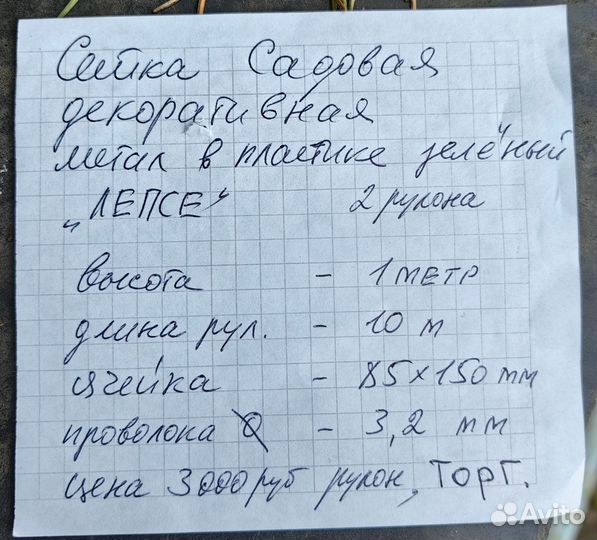 Сетка Садовая
декоративная
метал в пластике зелёный
„ЛЕПСЕ" 2 рулона
высота - 1 метр
длина рул. - 10 м
ячейка - 85×150 мм
проволока Ø - 3,2 мм
цена 3000 руб рулон, ТОРГ.
Avito